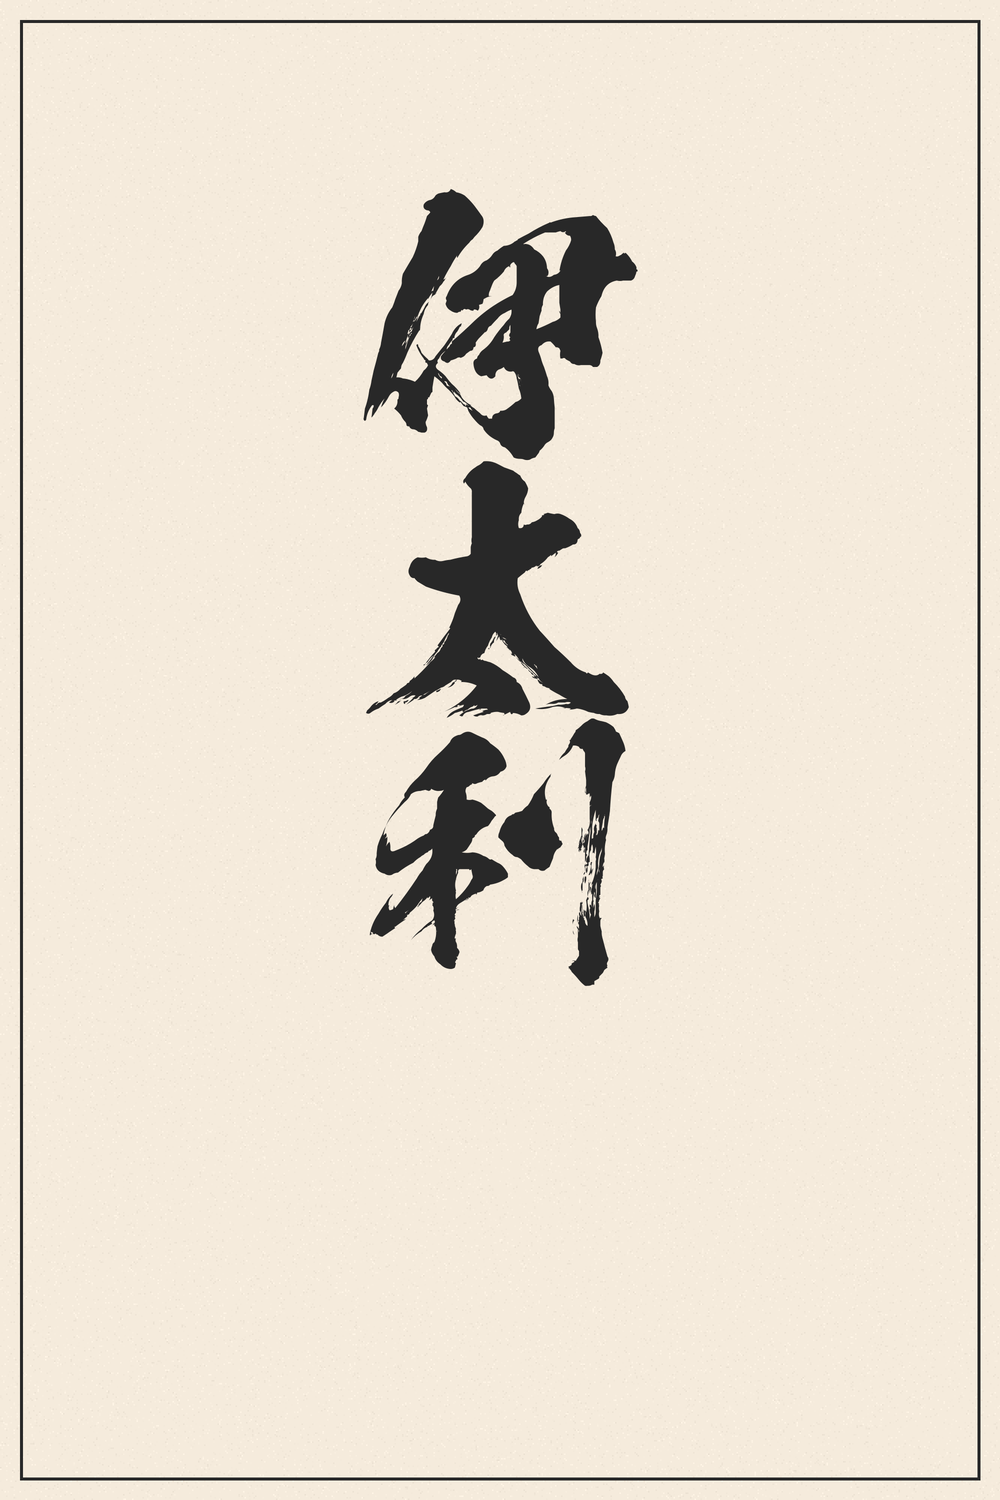 伊太利